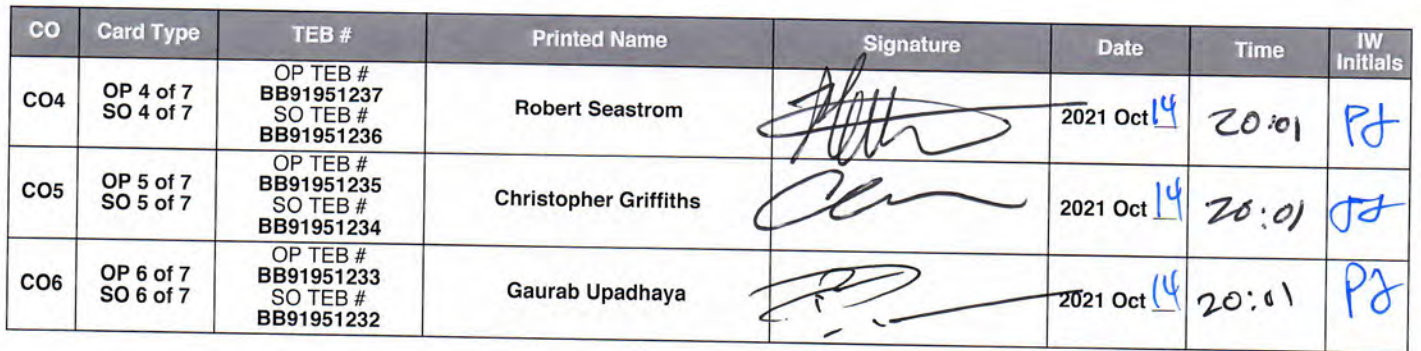 CO Card Type TEB # Printed Name Signature Date Time IW Initials
CO4 OP 4 of 7 SO 4 of 7 OP TEB # BB91951237 SO TEB # BB91951236 Robert Seastrom 2021 Oct 14 20:01 PJ
CO5 OP 5 of 7 SO 5 of 7 OP TEB # BB91951235 SO TEB # BB91951234 Christopher Griffiths 2021 Oct 14 20:01
CO6 OP 6 of 7 SO 6 of 7 OP TEB # BB91951233 SO TEB # BB91951232 Gaurab Upadhaya 2021 Oct 14 20:01 PJ